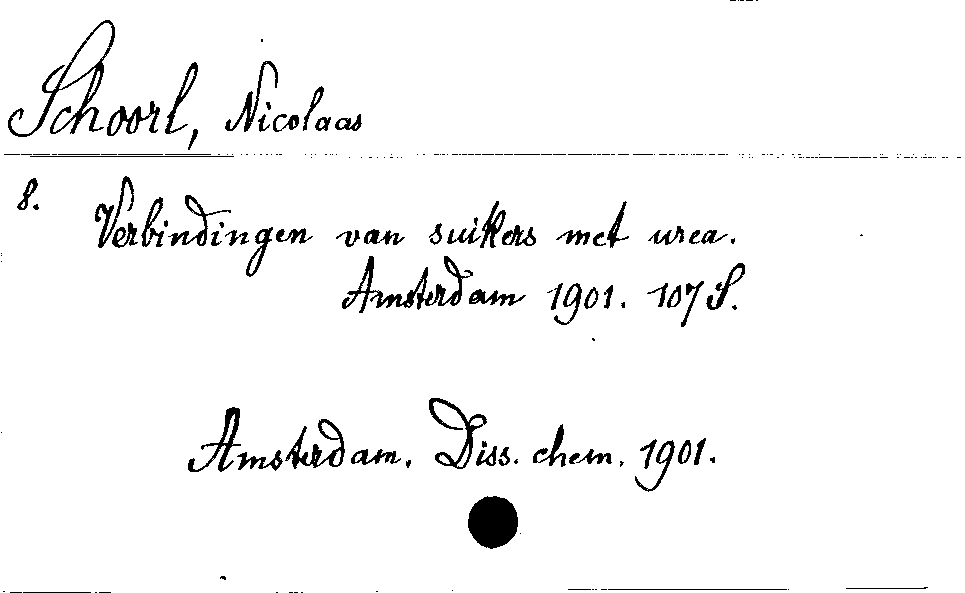 Schoorl, Nicolaas
8. Verbindingen van suikers met urea.
Amsterdam 1901. 107 S.
Amsterdam. Diss. chem. 1901.